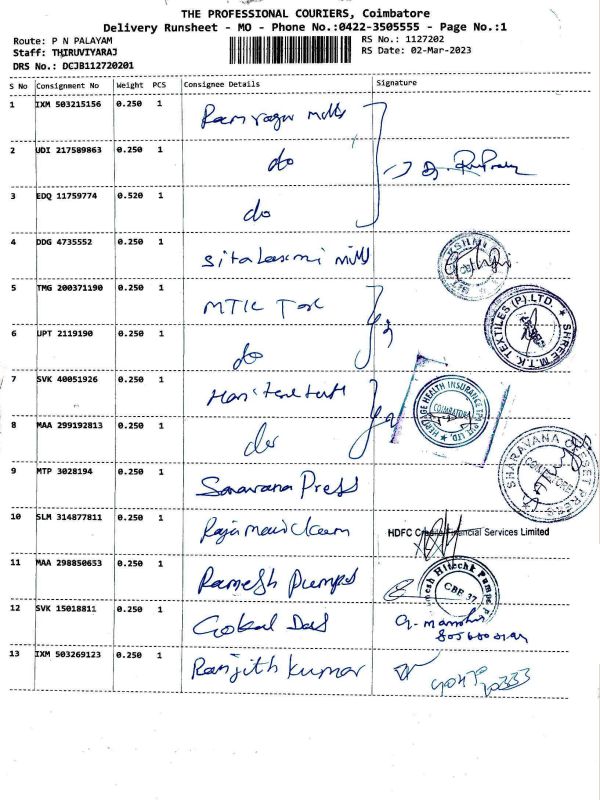 THE PROFESSIONAL COURIERS, Coimbatore
Delivery Runsheet - MO - Phone No.:0422-3505555 - Page No.:1
Route: P N PALAYAM
RS No.: 1127202
Staff: THIRUVIYARAJ
RS Date: 02-Mar-2023
DRS No.: DCJB112720201
S No Consignment No Weight PCS Consignee Details Signature
1 IXM 503215156 0.250 1 Ramragav mills
2 UDI 217589863 0.250 1 do
3 EDQ 11759774 0.520 1 do
4 DDG 4735552 0.250 1 Sitalaxmi mills
5 TMG 200371190 0.250 1 MTK Tex
SHREE M.T.K. TEXTILES (P).LTD.
6 UPT 2119190 0.250 1 do
7 SVK 40051926 0.250 1
HERITAGE HEALTH INSURANCE TPA PVT LTD.
COIMBATORE
8 MAA 299192813 0.250 1 do
9 MTP 3028194 0.250 1 Saravana Press
SHARAVANA OFFSET PRESS
COIMBATORE
10 SLM 314877811 0.250 1
HDFC Credila Financial Services Limited
11 MAA 298850653 0.250 1 Ramesh Pumps
Ramesh Hitechk Pumps
CBE 37
12 SVK 15018811 0.250 1 Gokul Das
13 IXM 503269123 0.250 1 Ranjith kumar